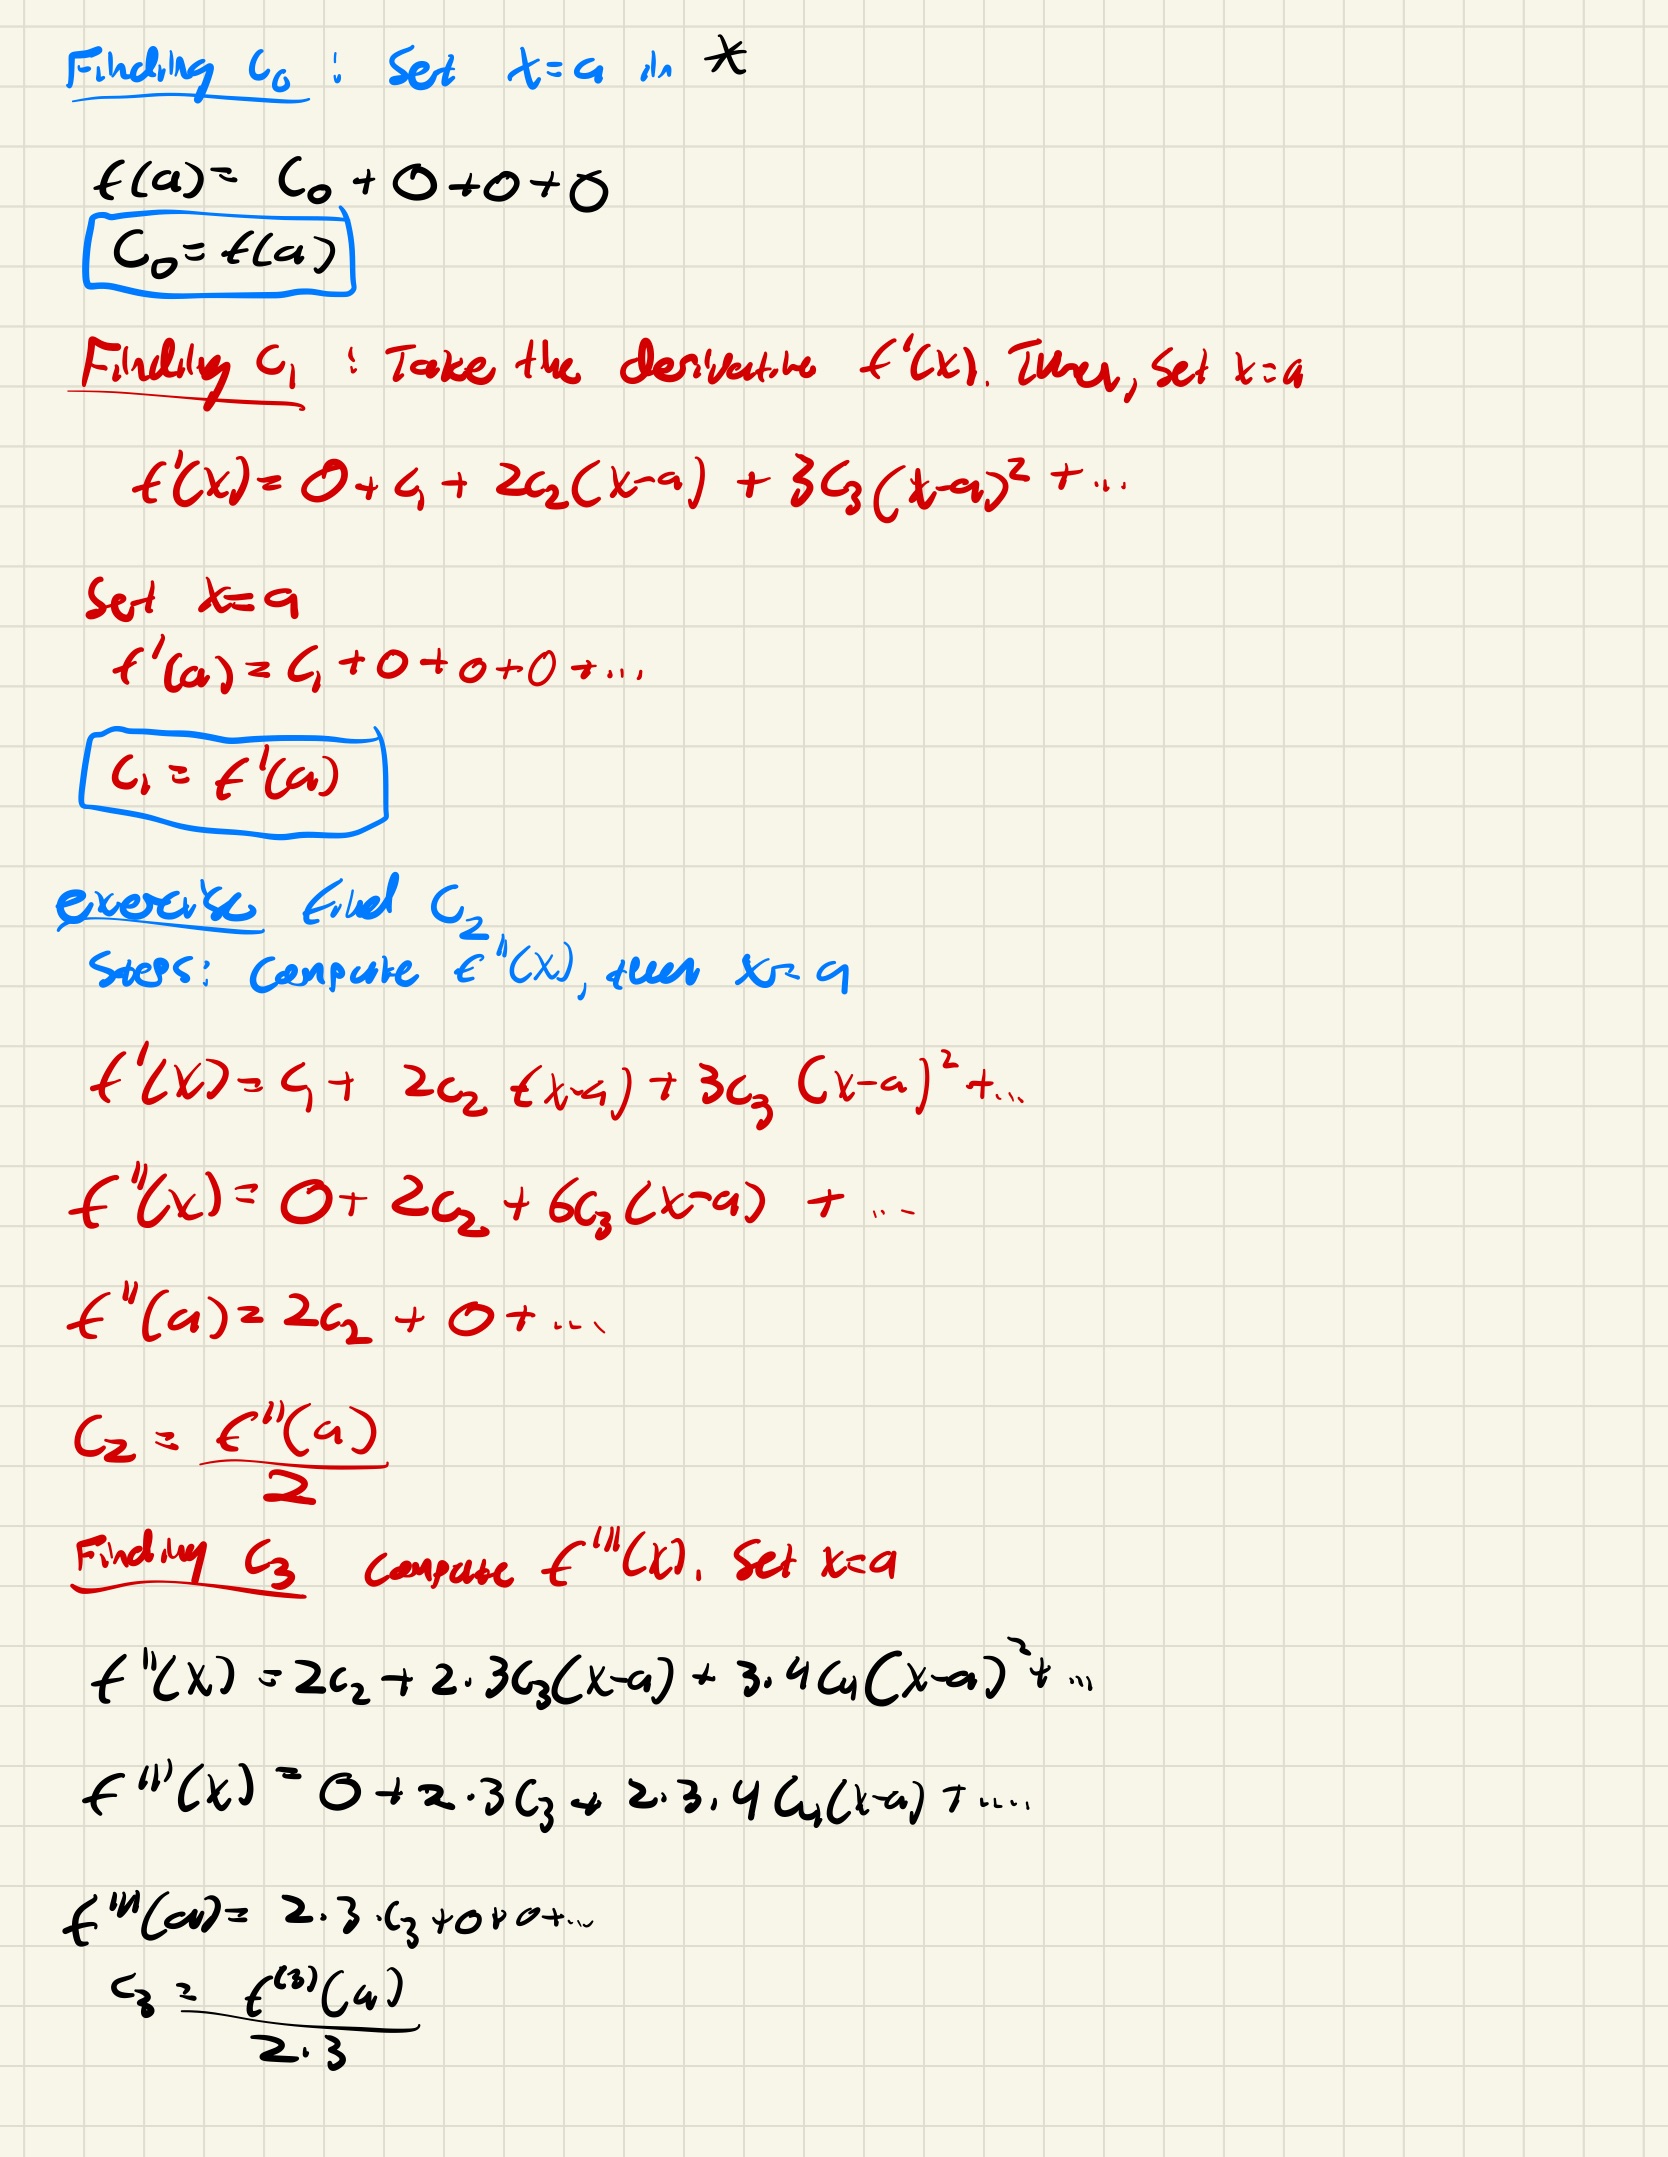 Finding C₀ : Set x=a in *
f(a) = C₀ + 0 + 0 + 0
C₀ = f(a)
Finding C₁ : Take the derivative f'(x). Then, set x=a
f'(x) = 0 + C₁ + 2C₂(x-a) + 3C₃(x-a)² + ...
Set x=a
f'(a) = C₁ + 0 + 0 + 0 + ...
C₁ = f'(a)
exercise find C₂
Steps: compute f''(x), then x=a
f'(x) = C₁ + 2C₂ (x-a) + 3C₃ (x-a)² + ...
f''(x) = 0 + 2C₂ + 6C₃(x-a) + ...
f''(a) = 2C₂ + 0 + ...
C₂ = f''(a)
2
Finding C₃ compute f'''(x). Set x=a
f''(x) = 2C₂ + 2·3C₃(x-a) + 3·4C₄(x-a)² + ...
f'''(x) = 0 + 2·3C₃ + 2·3·4C₄(x-a) + ....
f'''(a) = 2·3·C₃ + 0 + 0 + ...
C₃ = f⁽³⁾(a)
2·3